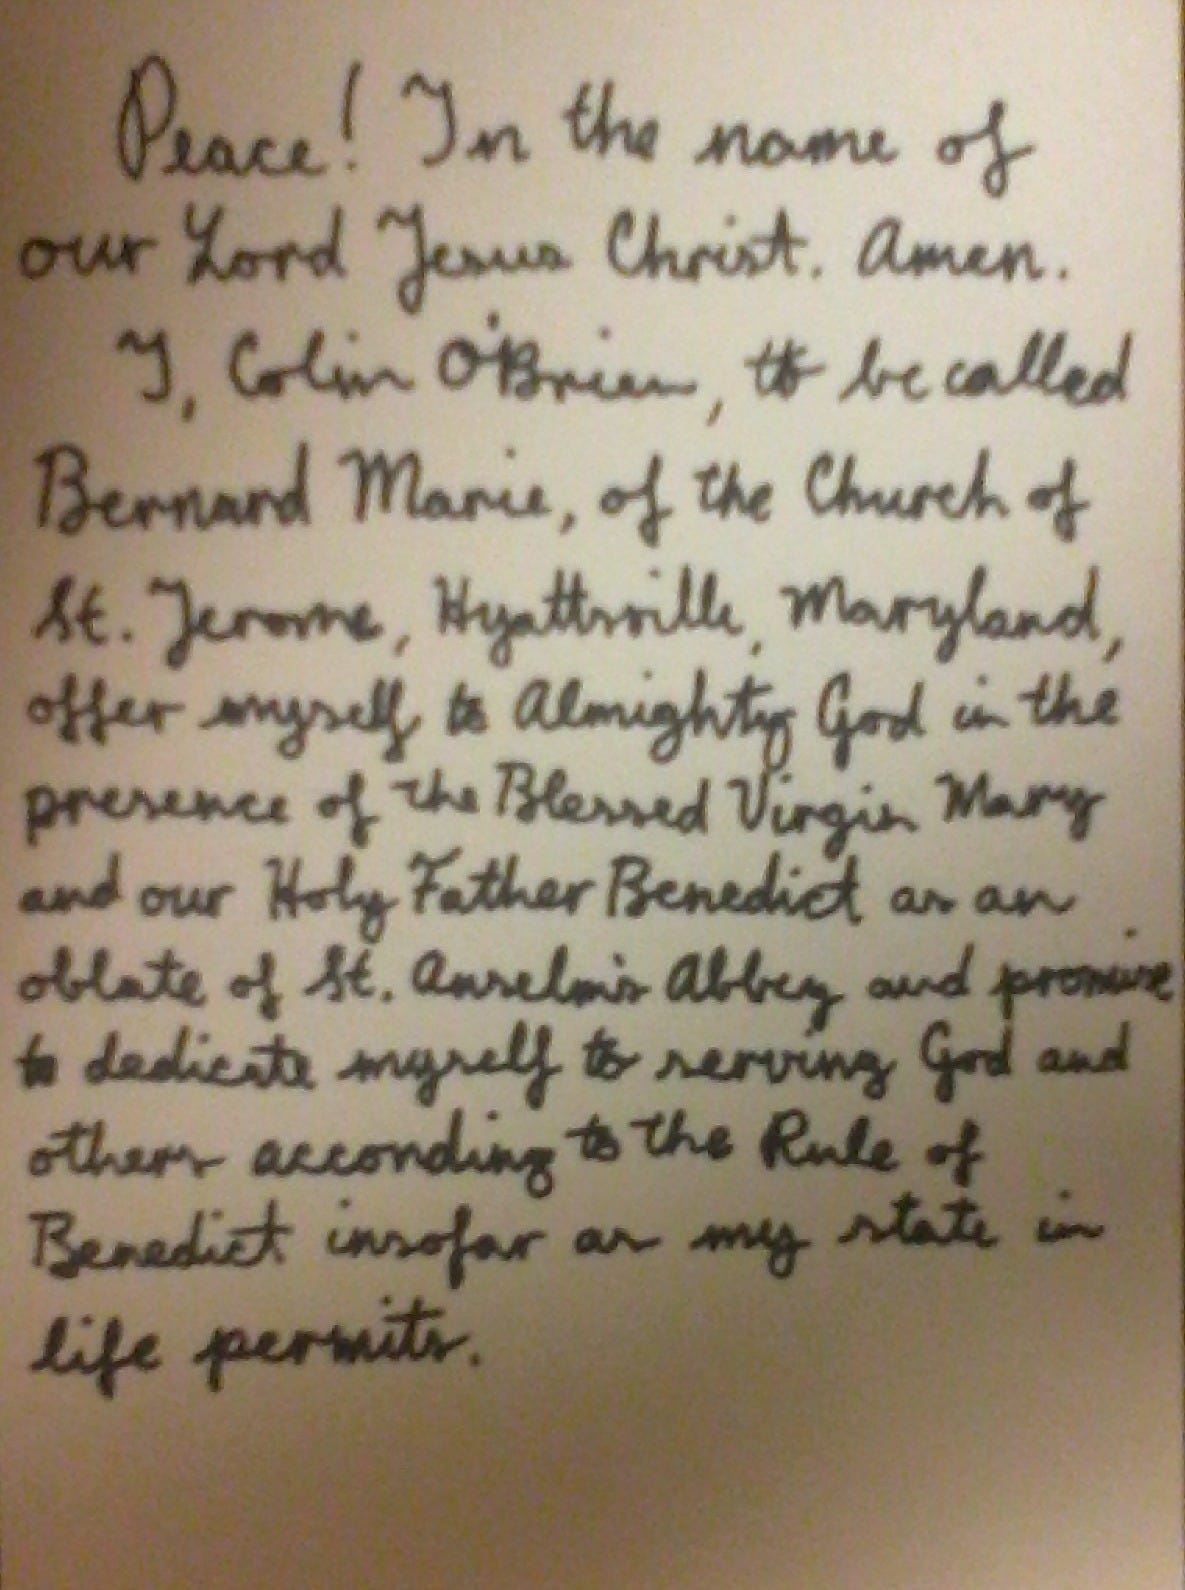 Peace! In the name of
our Lord Jesus Christ. Amen.
I, Colin O'Brien, to be called
Bernard Marie, of the Church of
St. Jerome, Hyattsville, Maryland,
offer myself to Almighty God in the
presence of the Blessed Virgin Mary
and our Holy Father Benedict as an
oblate of St. Anselm's Abbey and promise
to dedicate myself to serving God and
others according to the Rule of
Benedict insofar as my state in
life permits.